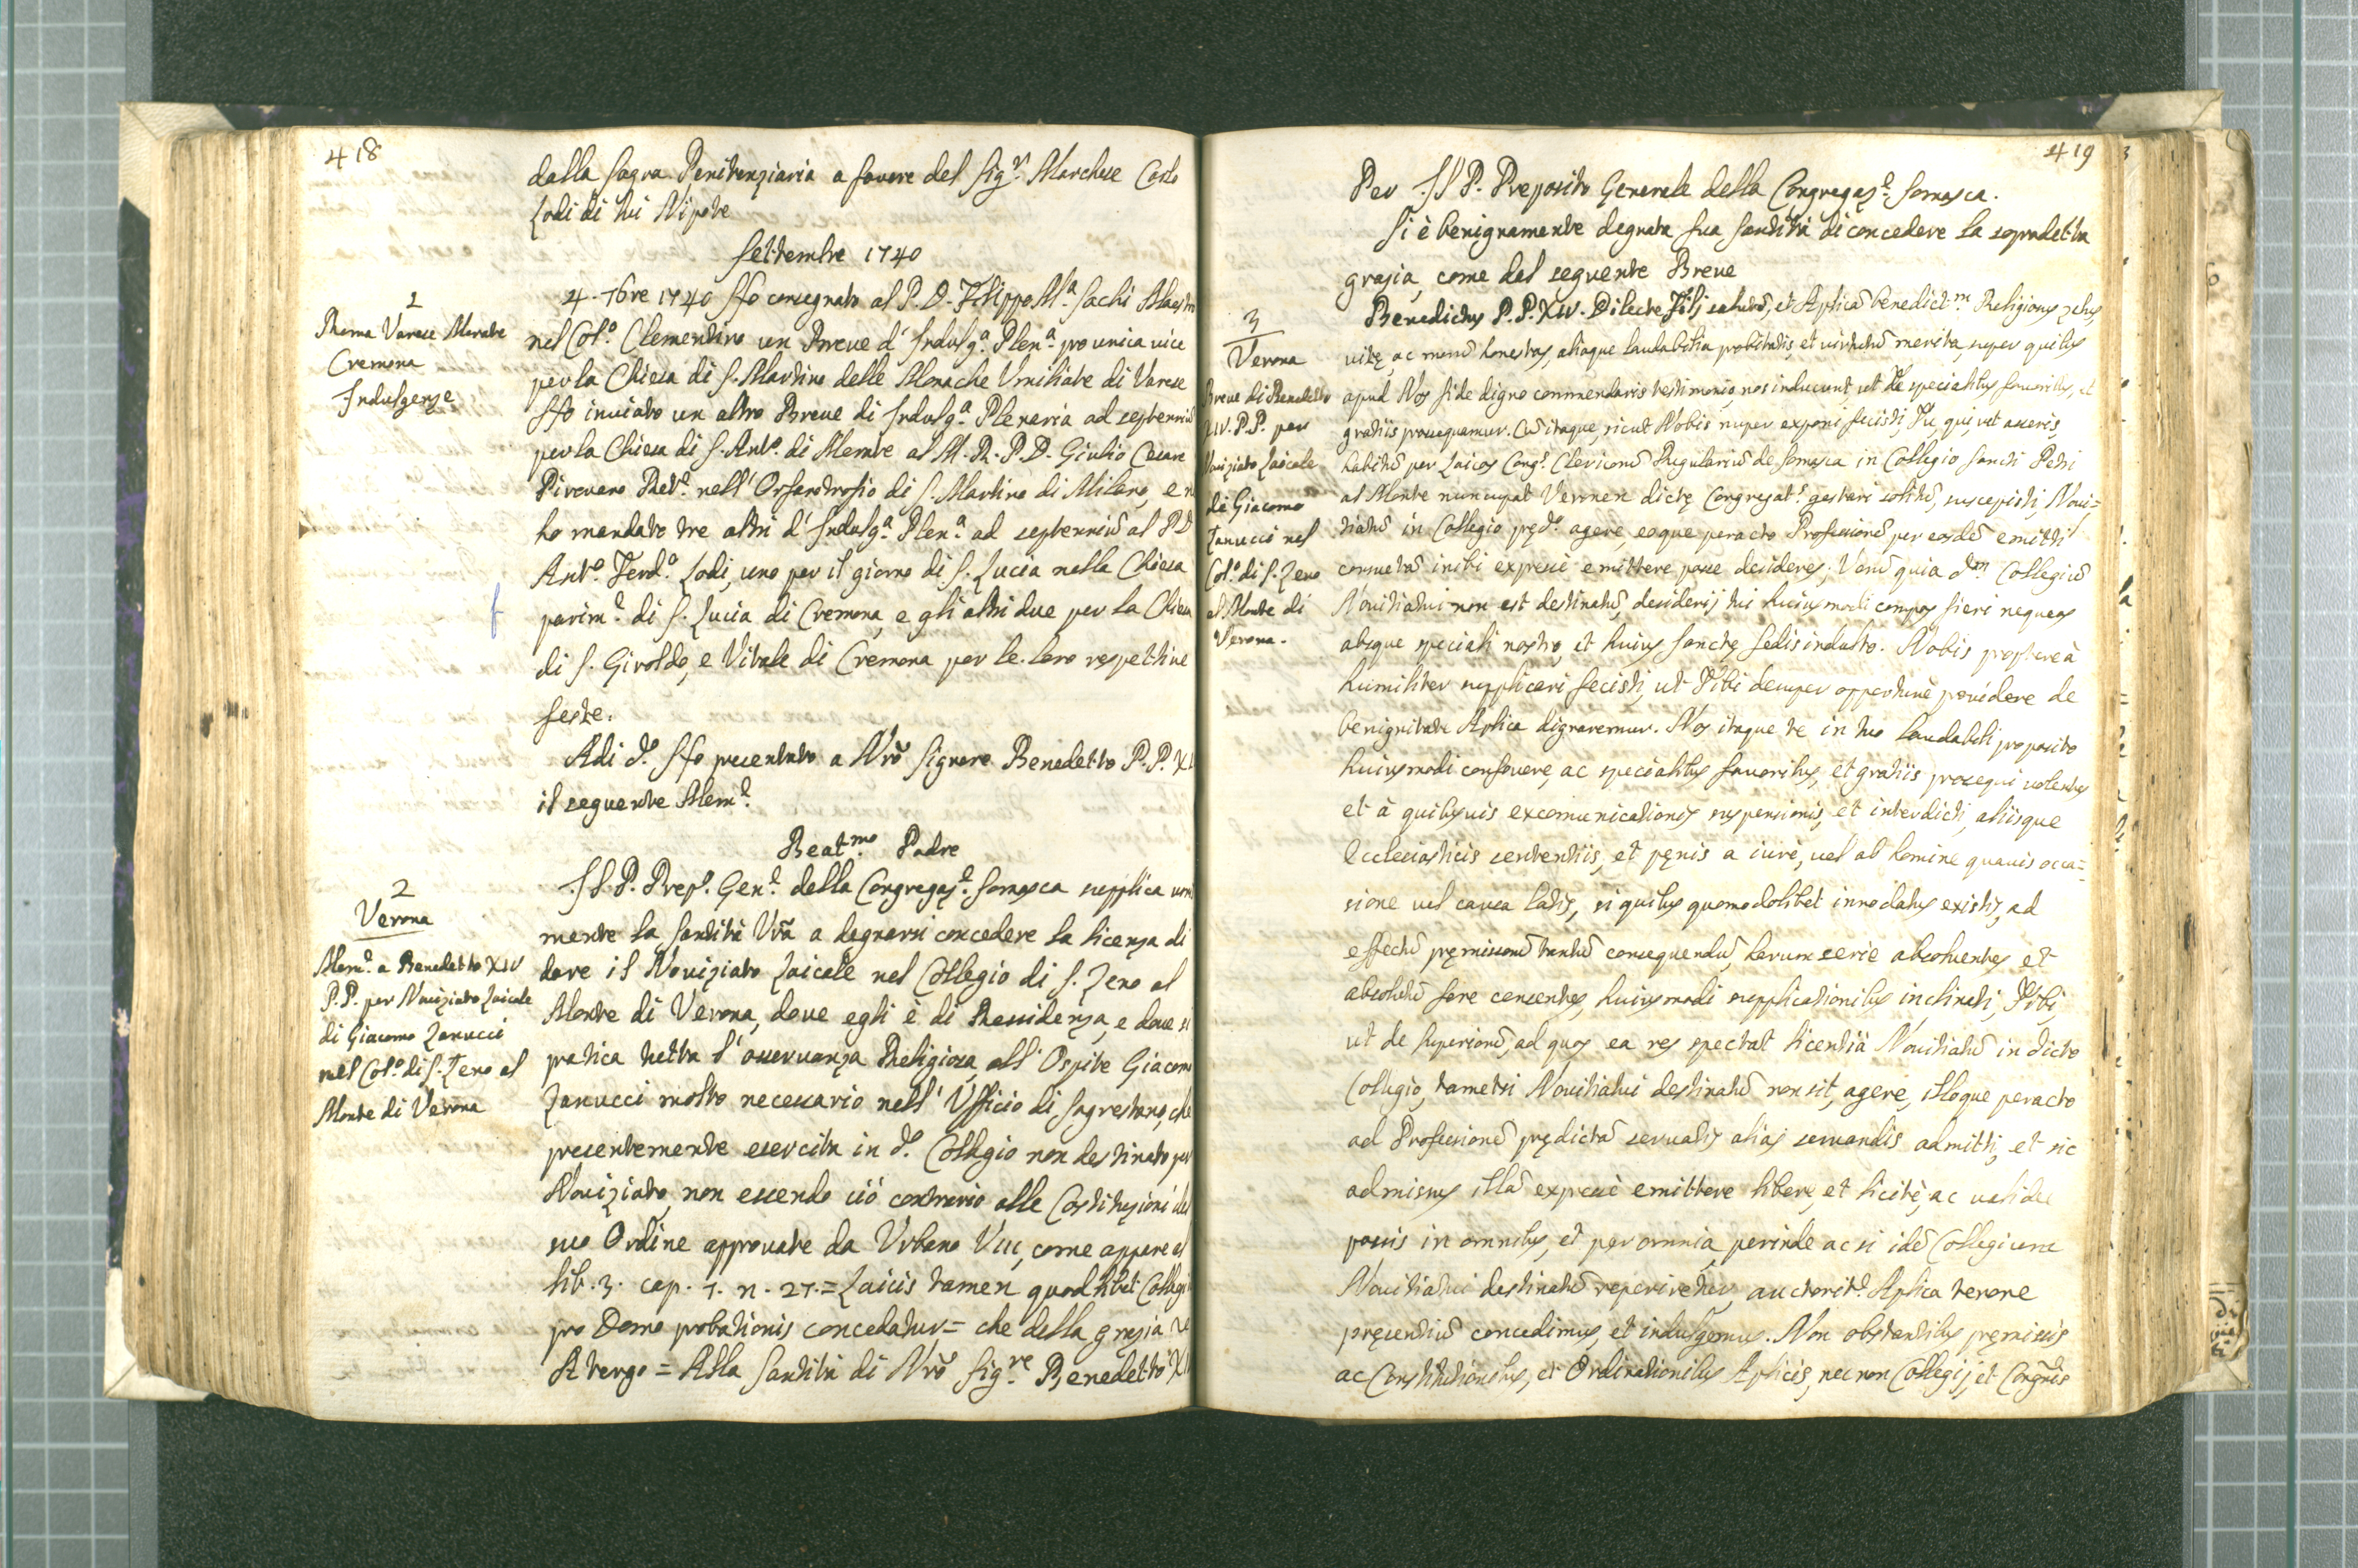 418
dalla Sagra Penitenziaria a favore del Sig.r Marchese Carlo
Lodi di lui Nipote
Settembre 1740
1
Roma Varese Merate
Cremona
Indulgenze
4. 7bre 1740 Ho consegnato al P. D. Filippo M.a Sachi Maestro
nel Col.o Clementino un Breve d'Indulg.a Plen.a pro unica vice
per la Chiesa di S. Martino delle Monache Umiliate di Varese
Ho inviato un altro Breve di Indulg.a Plenaria ad septenniũ
per la Chiesa di S. Ant.o di Merate al M. R. P. D. Giulio Cesare
Pirovano Ret.e nell'Orfanotrofio di S. Martino di Milano, e ne
ho mandato tre altri d'Indulg.a Plen.a ad septenniũ al P D
Ant.o Ferd.o Lodi, uno per il giorno di S. Lucia nella Chiesa
parim.e di S. Lucia di Cremona, e gli altri due per la Chiesa
di S. Giroldo, e Vitale di Cremona per le loro respettive
feste.
Adi d.o Ho presentato a Nrõ Signore Benedetto P. P. XI
il seguente Mem.e
Beat.mo Padre
2
Verona
Mem.e a Benedetto XIV
P. P. per Noviziato Laicale
di Giacomo Zanucci
nel Col.o di S. Zeno al
Monte di Verona
Il P. Prep.o Gen.e della Congregaz.e Somasca supplica umil
mente la Santità Vrã a degnarsi concedere la licenza di
dare il Noviziato Laicale nel Collegio di S. Zeno al
Monte di Verona, dove egli è di Ressidenza, e dove si
pratica tutta l'osservanza Religiosa, all'Ospite Giacomo
Zanucci molto necessario nell'Ufficio di Sagrestano, che
presentemente esercita in d.o Collegio non destinato per
Noviziato, non essendo ciò contrario alle Costituzioni del
suo Ordine approvate da Urbano VIII, come appare al
lib. 3. cap. 7. n. 27. = Laicis tamen quodlibet Collegi
pro Domo probationis concedatur = che della grazia
A tergo = Alla Santità di Nrõ Sig.re Benedetto XIV
419
Per Il P. Preposito Generale della Congregaz.e Somasca.
Si è benignamente degnata Sua Santità di concedere la sopradetta
grazia, come dal seguente Breve
3
Verona
Breve di Benedetto
XIV. P. P. per
Noviziato Laicale
di Giacomo
Zanucci nel
Col.o di S. Zeno
al Monte di
Verona.
Benedictus P. P. XIV. Dilecte Fili, salutẽ, et Aplicã benedict.m Religionis zelus,
vitę, ac morũ honestas, aliaque laudabilia probitatis, et virtutũ merita, super quibus
apud Nos fide digno commendaris testimonio, nos inducunt, ut Te specialibus favoribus, et
gratiis prosequamur. Cũ itaque, sicut Nobis nuper exponi fecisti, Tu, qui, ut asseris,
habitũ per Laicos Cong.s Clericorũ Regulariũ de Somasca in Collegio Sancti Petri
al Monte nuncupat Veronen dictę Congregat.s gestari solitũ, suscepisti, Novi=
tiatũ in Collegio pęd.o agere, eoque peracto Professionẽ per eosdẽ emitti
consuetã inibi expressè emittere posse desideres; Verũ quia d.m Collegiũ
Novitiatui non est destinatũ, desiderij tui huiusmodi compos fieri nequeas
absque speciali nostro, et huius Sanctę Sedis indulto. Nobis proptereà
humiliter supplicari fecisti, ut Tibi desuper opportunè providere de
benignitate Aplica dignaremur. Nos itaque te in tuo laudabili proposito
huiusmodi confovere, ac specialibus favoribus, et gratiis prosequi volentes
et à quibusvis excomunicationis, suspensionis, et interdicti, aliisque
Ecclesiasticis sententiis, et pęnis a iure, vel ab homine quavis occa=
sione vel causa latis, si quibus quomodolibet innodatus existis, ad
effectũ pręmissorũ tantũ consequendũ, harum serie absolventes et
absolutũ fore censentes, huiusmodi supplicationibus inclinati, Tibi,
ut de Superiorũ, ad quos ea res spectat licentiã Novitiatũ in dicto
Collegio, tametsi Novitiatui destinatũ non sit, agere, illoque peracto
ad Professionẽ prędictã servatis aliàs servandis admitti, et sic
admissus illã expressè emittere liberè, et licitè, ac validè
possis in omnibus, et per omnia, perinde ac si idẽ Collegium
Novitiatui destinatũ reperiretur, auctorit.e Aplica tenore
pręsentiũ concedimus, et indulgemus. Non obstantibus pręmissis
ac Constitutionibus, et Ordinationibus Aplicis, nec non Collegij, et Congñis